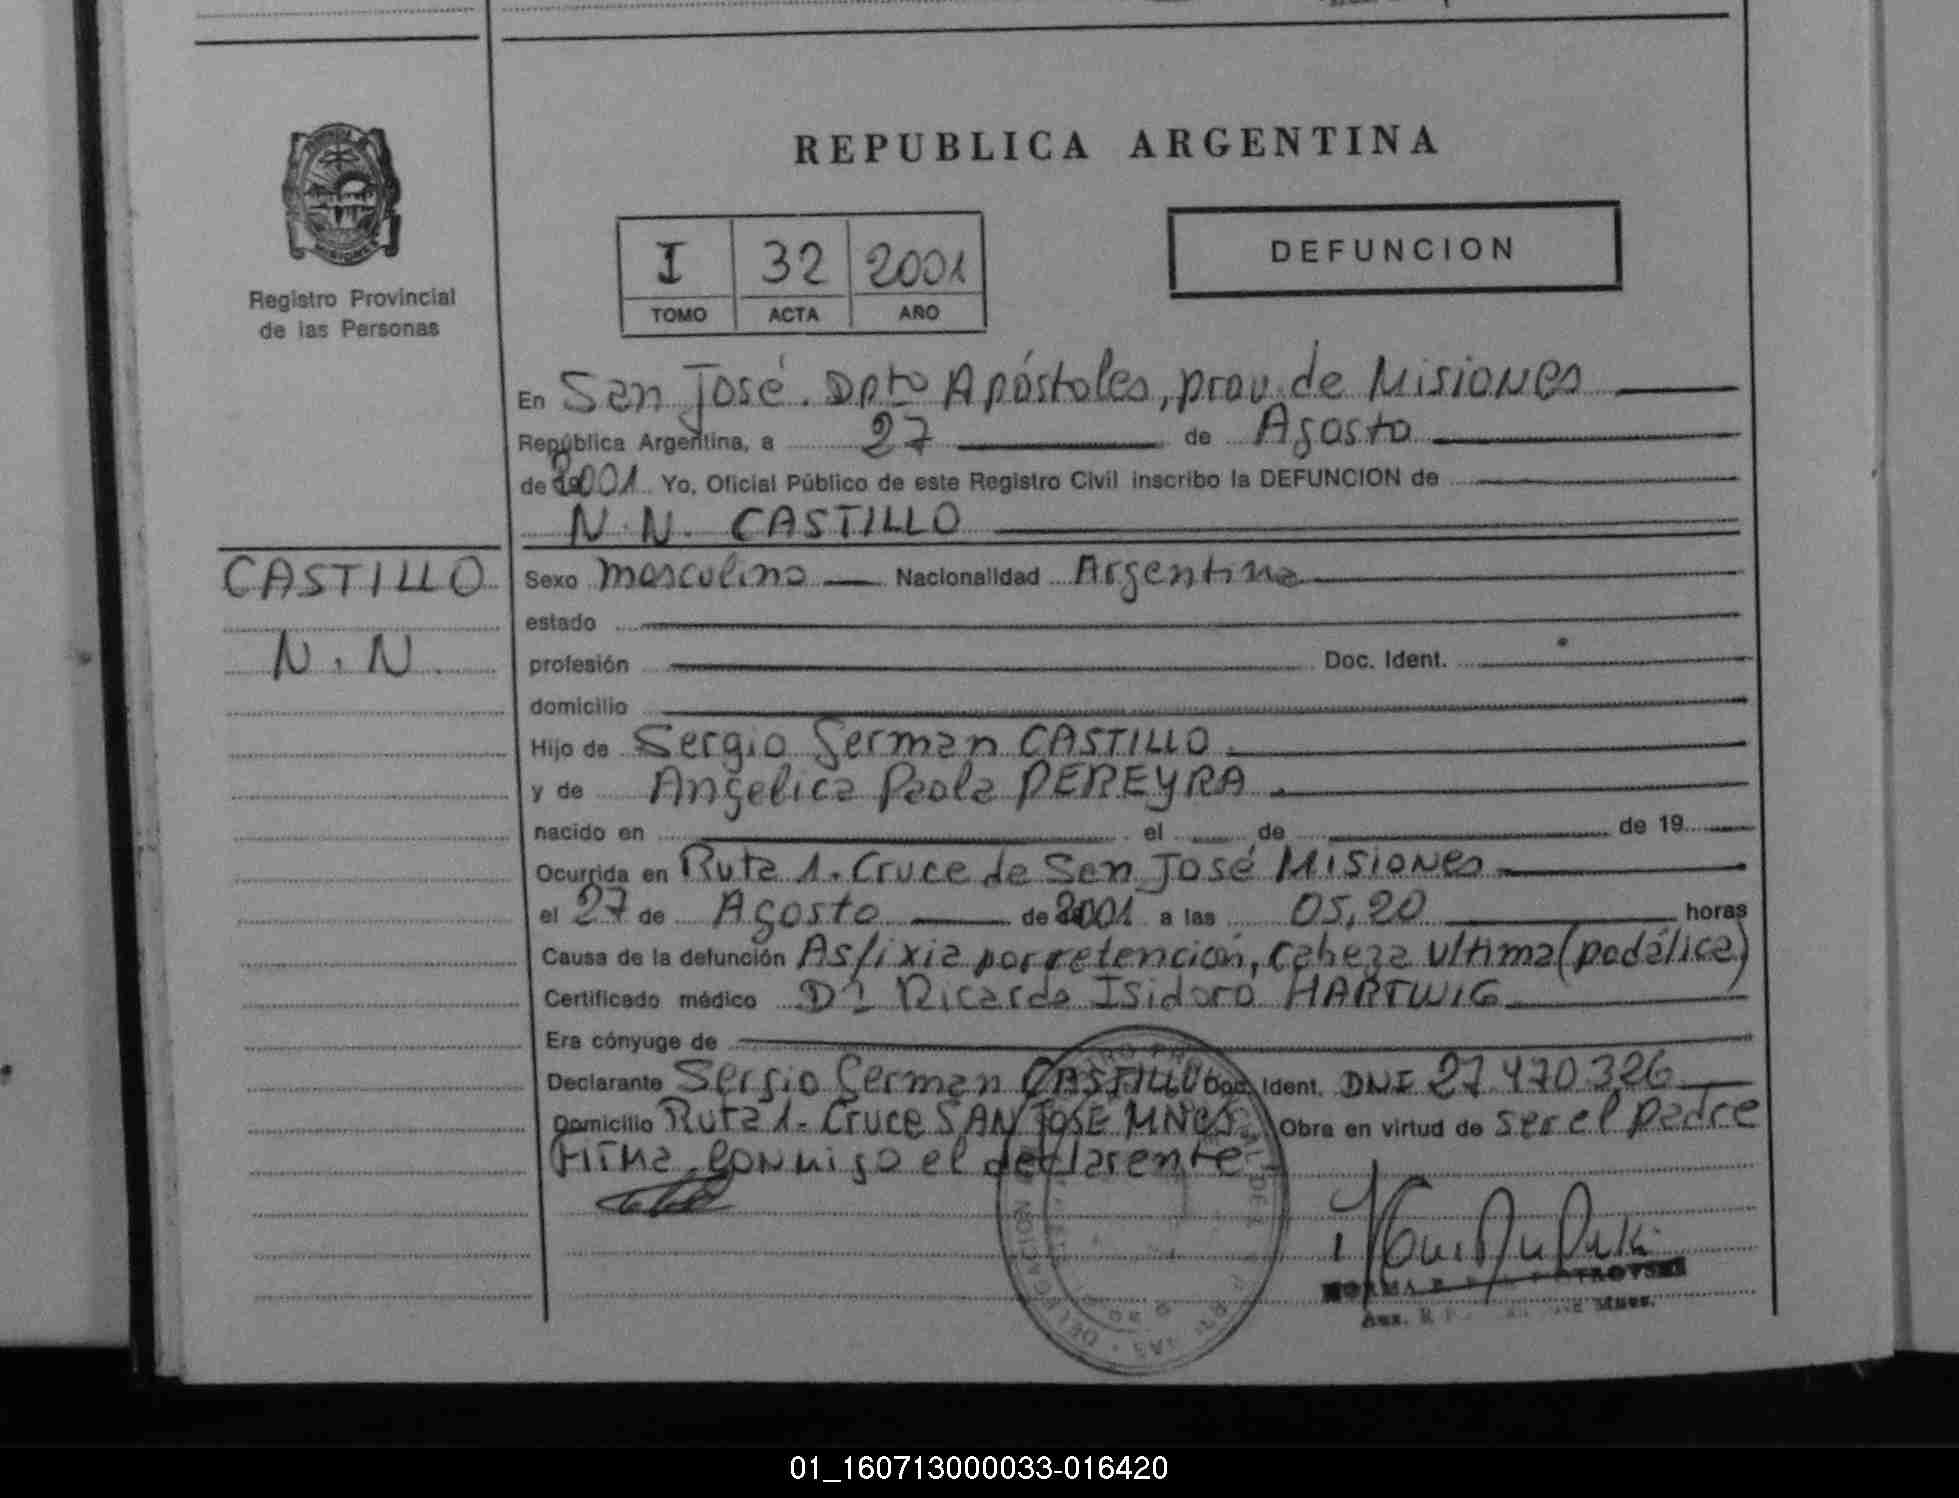 REPUBLICA ARGENTINA
PROVINCIA
MISIONES
Registro Provincial
de las Personas
I 32 2001
TOMO ACTA AÑO
DEFUNCION
En San José. Dpto Apóstoles, prov. de Misiones
República Argentina, a 27 de Agosto
de 2001 Yo, Oficial Público de este Registro Civil inscribo la DEFUNCION de
N.N. CASTILLO
CASTILLO
N.N.
Sexo masculino Nacionalidad Argentina
estado
profesión Doc. Ident.
domicilio
Hijo de Sergio German CASTILLO
y de Angelica Paola PEREYRA
nacido en el de de 19
Ocurrida en Ruta 1. Cruce de San José Misiones
el 27 de Agosto de 2001 a las 05,20 horas
Causa de la defunción Asfixia por retención, cabeza ultima (podálica)
Certificado médico Dr Ricardo Isidoro HARTWIG
Era cónyuge de
Declarante Sergio German CASTILLO Doc. Ident. DNI 27.470.326
Domicilio Ruta 1. Cruce SAN JOSE MNES. Obra en virtud de ser el padre
Firma conmigo el declarante
NORMA
Aux. Mnes.
01_160713000033-016420